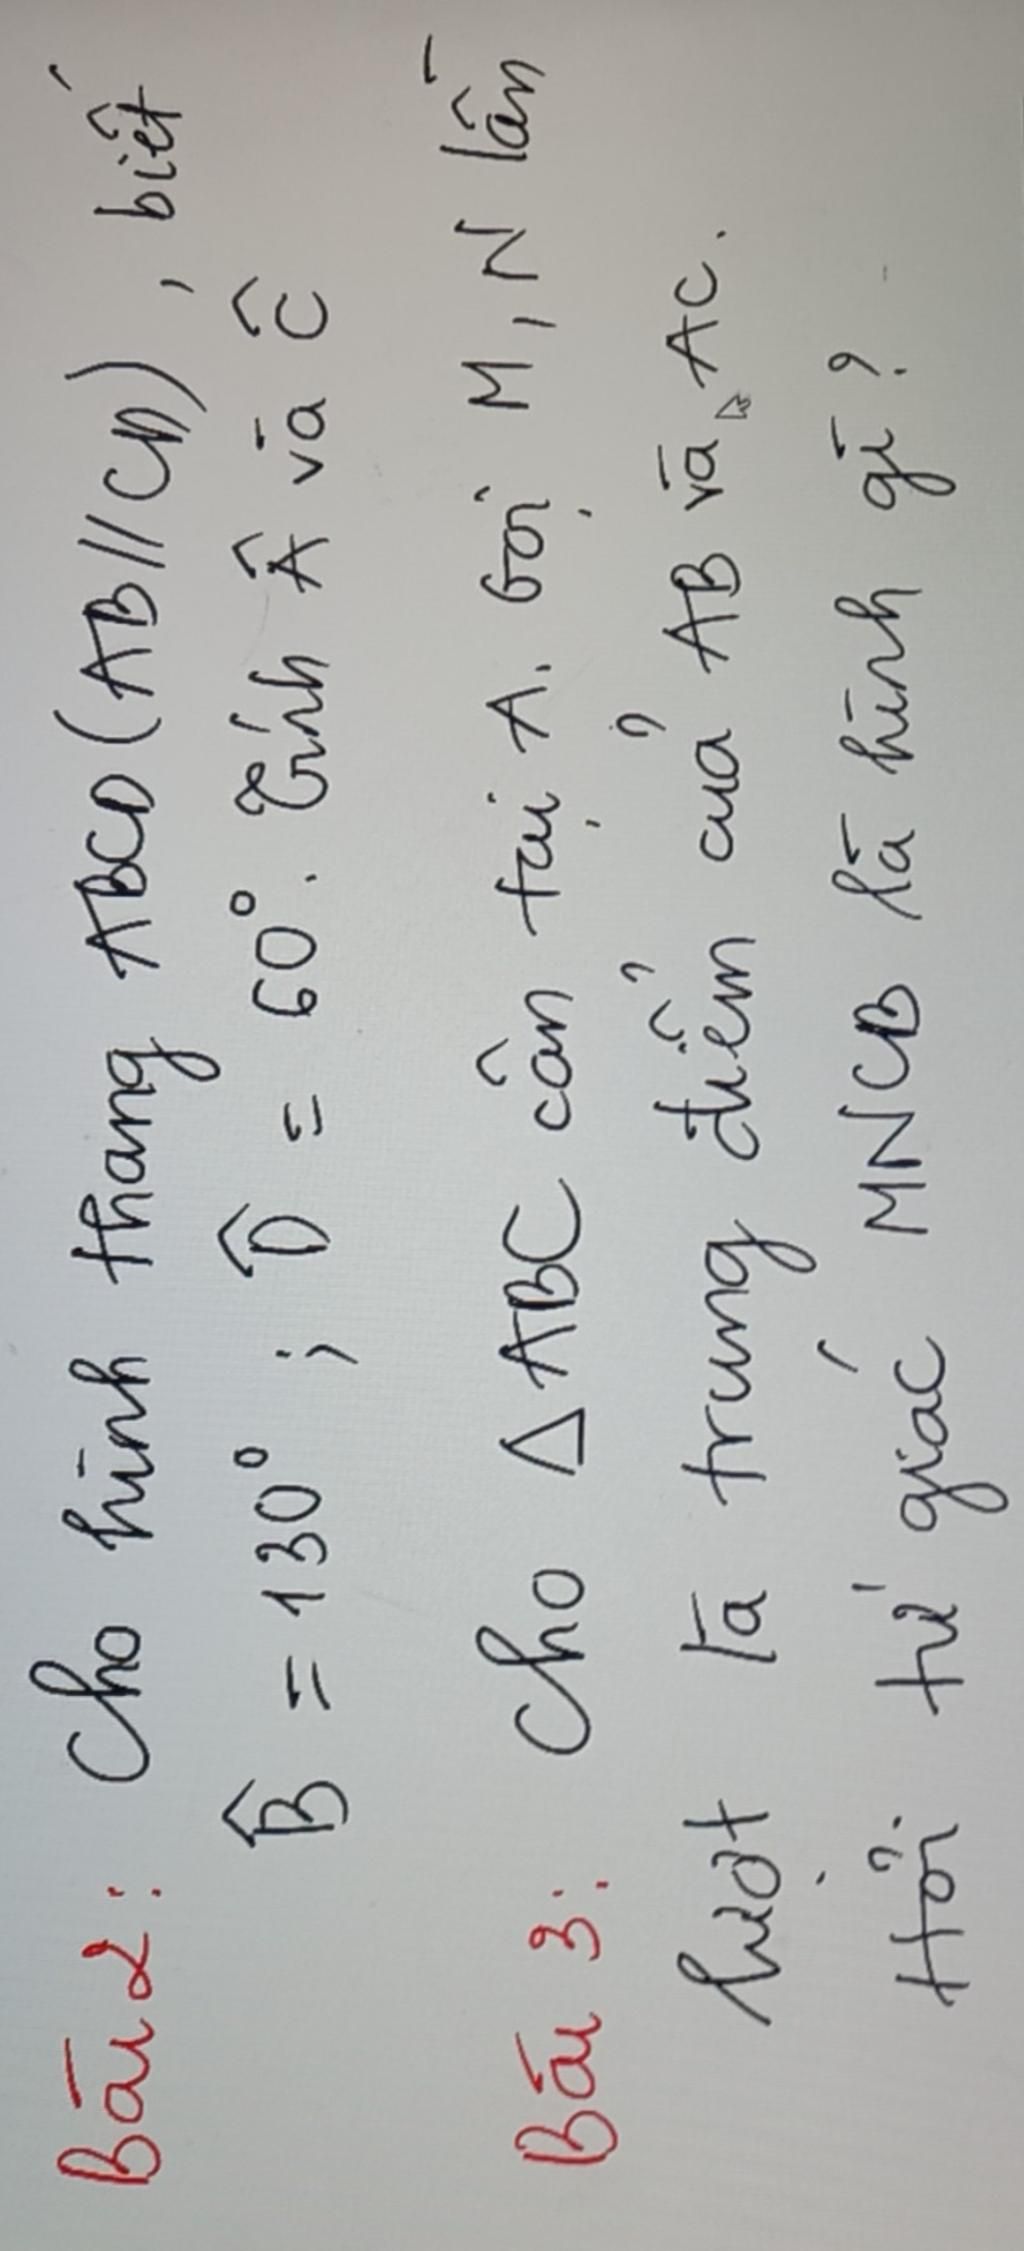 Bài 2: Cho hình thang ABCD (AB//CD), biết
B̂ = 130° ; D̂ = 60°. Tính Â và Ĉ
Bài 3: Cho △ABC cân tại A. Gọi M, N lần
lượt là trung điểm của AB và AC.
Hỏi tứ giác MNCB là hình gì?